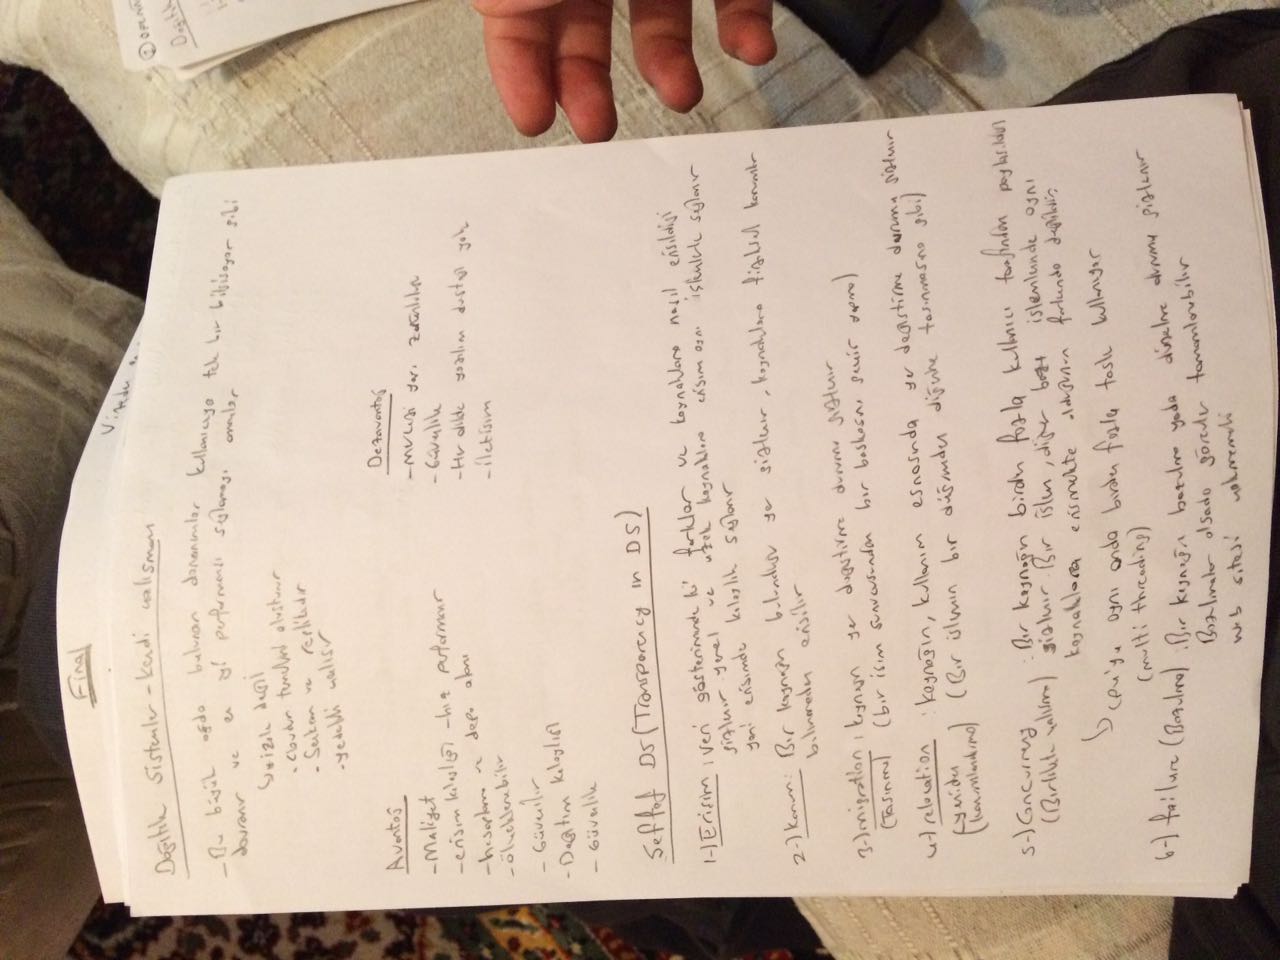 Final
Dağıtık Sistemler - Kendi çalışmam
- Bu büyük ağda bulunan donanımlar kullanıcıya tek bir bilgisayar gibi
davranır ve en iyi performansı sağlamayı amaçlar
değil
- Cloudun temelini oluşturur
- Senkron ve
- yedekli çalışır
Avantaj
- Maliyet
- erişim kolaylığı - hız performans
- hesaplama ve depo alanı
- ölçeklenebilir
- Güvenilir
- Dağıtım kolaylığı
- Güvenlik
Dezavantaj
- Merkezi yapı zorunluluğu
- Güvenlik
- Her dilde yazılım desteği yok
- iletişim
Şeffaf DS (Transparency in DS)
1-) Erişim: veri gösterimindeki farklar ve kaynaklara nasıl erişildiği
gizlenir yerel ve uzak kaynaklara erişim aynı işlemlerle sağlanır
yani erişimde kolaylık sağlanır
2-) Konum: Bir kaynağın bulunduğu yer gizlenir, kaynaklara fiziksel konumlar
bilinmeden erişilir
3-) migration: kaynağın yer değiştirme durumu gizlenir
(Taşınma) (bir isim sunucusundan bir başkasına geçiş yapma)
4-) relocation: kaynağın, kullanım esnasında yer değiştirme durumu gizlenir
(yeniden konumlandırma) (Bir işlemin bir düğümden diğerine taşınması gibi)
5-) Concurrency: Bir kaynağın birden fazla kullanıcı tarafından paylaşıldığı
(Birlikte çalışma) gizlenir. Bir işlem, diğer bazı işlemlerinde aynı
kaynaklara erişmekte olduğunun farkında değildir.
cpu'yu aynı anda birden fazla task kullanıyor
(multi threading)
6-) failure (Bozulma): Bir kaynağın bozulma yada düzelme durumu gizlenir
Bozulmalar olsada görevler tamamlanabilir
web sitesi çökmemeli